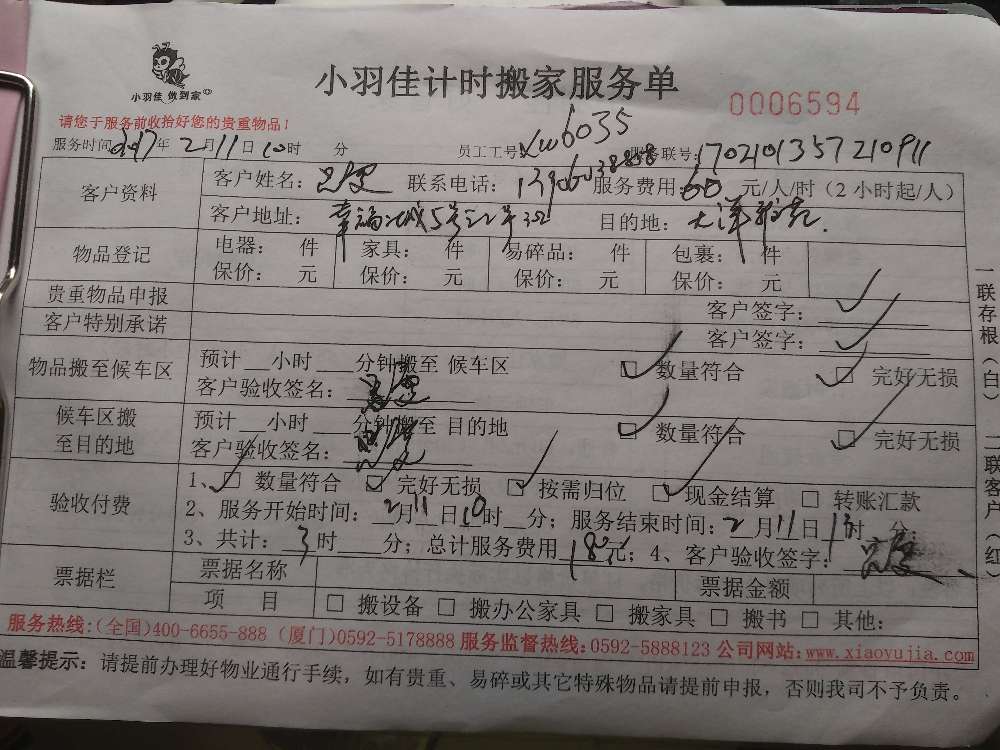 小羽佳 做到家
小羽佳计时搬家服务单
0006594
请您于服务前收拾好您的贵重物品！
服务时间 2017年2月11日10时 分 员工工号 服务联号：1702101357210911
客户资料
客户姓名： 联系电话： 服务费用 60 元/人/时（2小时起/人）
客户地址： 目的地：
物品登记
电器： 件 家具： 件 易碎品： 件 包裹： 件
保价： 元 保价： 元 保价： 元 保价： 元
贵重物品申报 客户签字：
客户特别承诺 客户签字：
物品搬至候车区
预计 小时 分钟搬至 候车区 □ 数量符合 □ 完好无损
客户验收签名：
候车区搬至目的地
预计 小时 分钟搬至 目的地 □ 数量符合 □ 完好无损
客户验收签名：
验收付费
1、□ 数量符合 □ 完好无损 □ 按需归位 □ 现金结算 □ 转账汇款
2、服务开始时间：2月11日10时 分；服务结束时间：2月11日13时 分；
3、共计：3时 分；总计服务费用 180元；4、客户验收签字：
票据栏
票据名称 票据金额
项 目 □ 搬设备 □ 搬办公家具 □ 搬家具 □ 搬书 □ 其他：
服务热线：(全国)400-6655-888 (厦门)0592-5178888 服务监督热线：0592-5888123 公司网站：www.xiaoyujia.com
温馨提示：请提前办理好物业通行手续，如有贵重、易碎或其它特殊物品请提前申报，否则我司不予负责。
一联存根（白） 二联客户（红）